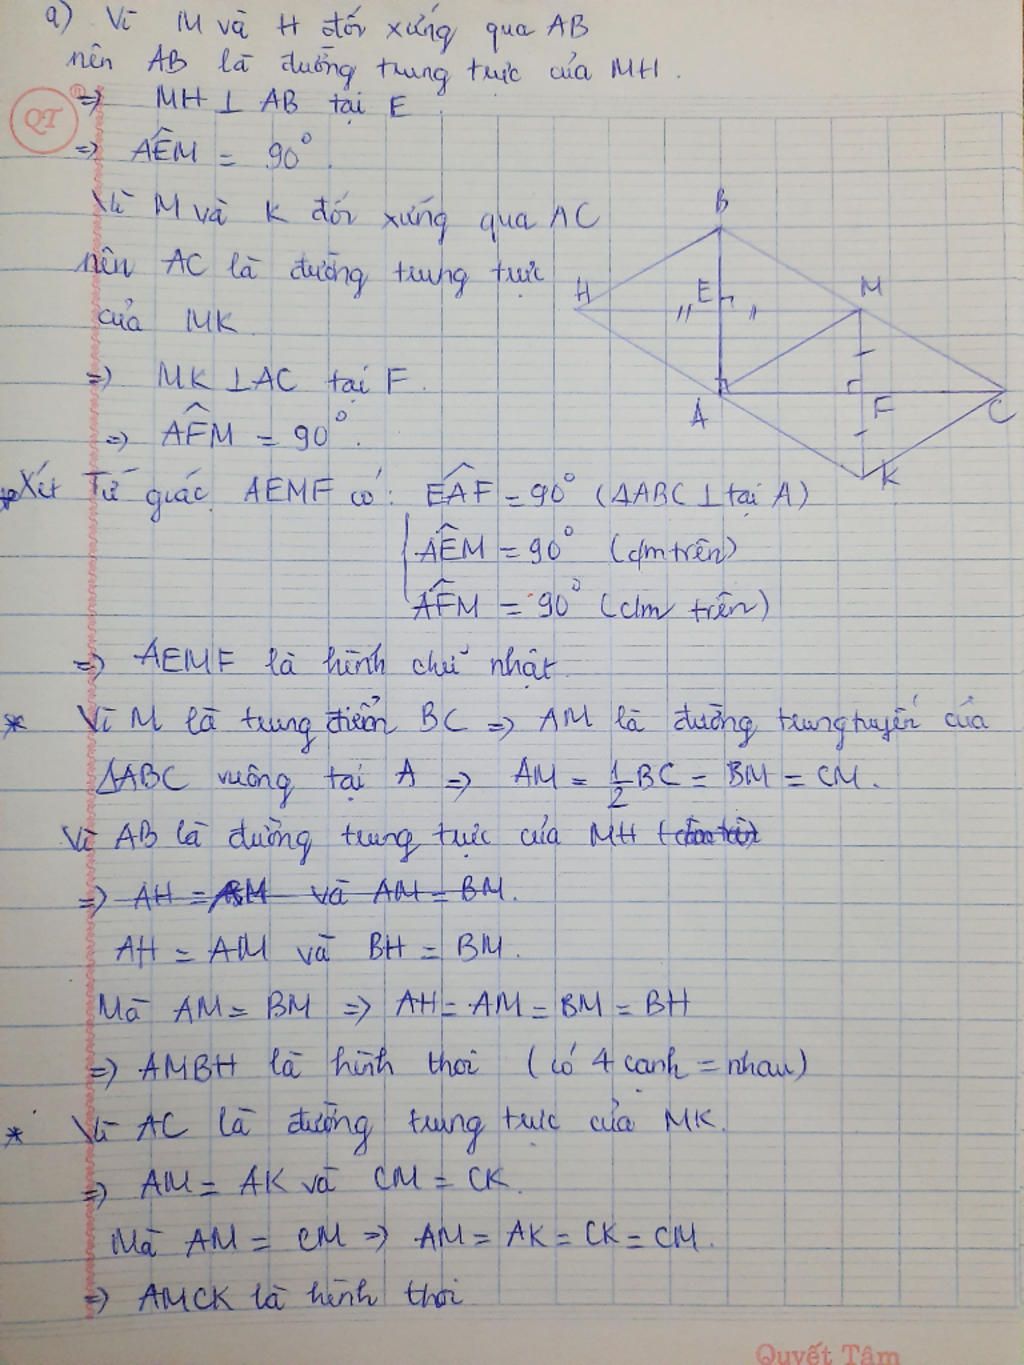 a) Vì M và H đối xứng qua AB
nên AB là đường trung trực của MH.
QT
=> MH ⊥ AB tại E
=> AÊM = 90°.
Vì M và K đối xứng qua AC
nên AC là đường trung trực
của MK.
=> MK ⊥ AC tại F.
=> AF̂M = 90°.
B
H
E
M
A
F
C
K
* Xét Tứ giác AEMF có: EÂF = 90° (ΔABC ⊥ tại A)
AÊM = 90° (cm trên)
AF̂M = 90° (cm trên)
=> AEMF là hình chữ nhật
* Vì M là trung điểm BC => AM là đường trung tuyến của
ΔABC vuông tại A => AM = 1/2 BC = BM = CM.
Vì AB là đường trung trực của MH
=> AH = AM và AM = BM.
AH = AM và BH = BM.
Mà AM = BM => AH = AM = BM = BH
=> AMBH là hình thoi (có 4 cạnh = nhau)
* Vì AC là đường trung trực của MK.
=> AM = AK và CM = CK.
Mà AM = CM => AM = AK = CK = CM.
=> AMCK là hình thoi
Quyết Tâm